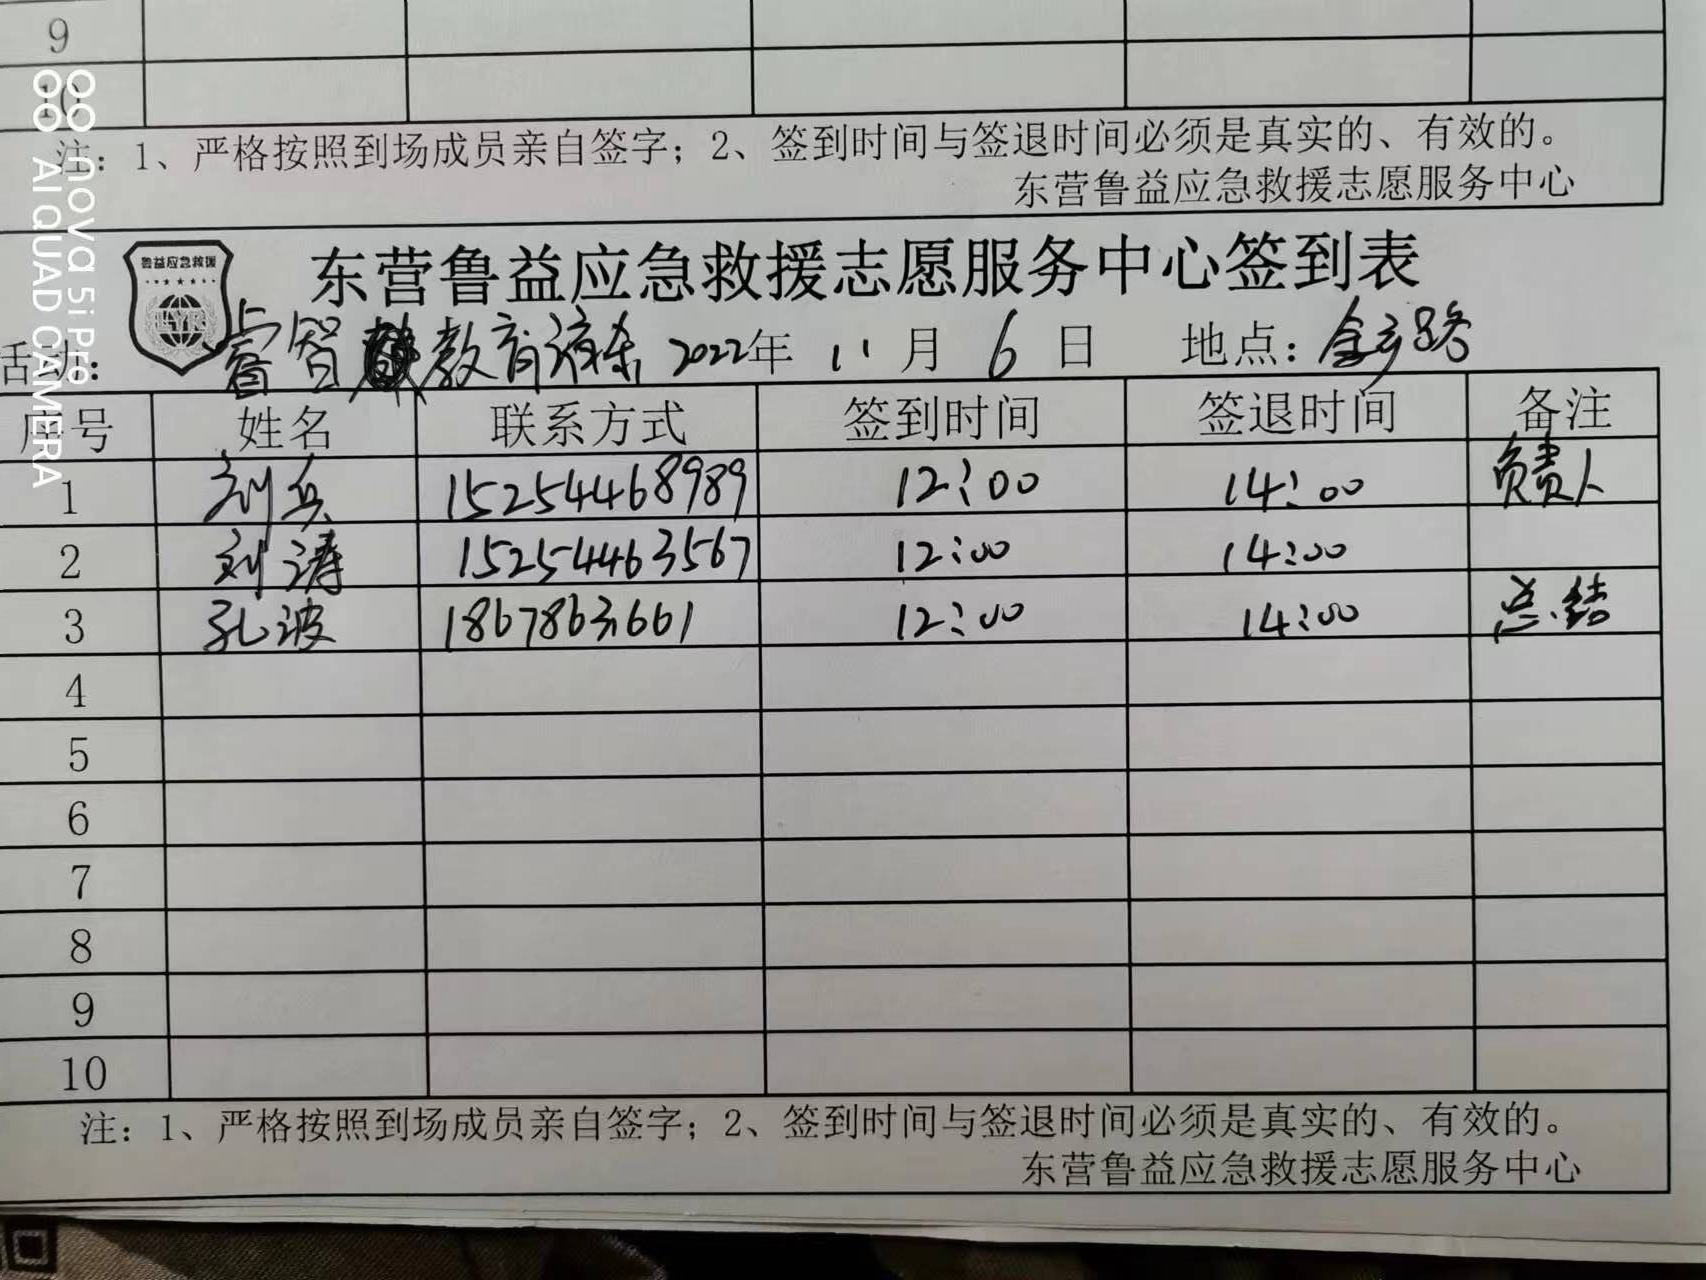 9
10
注：1、严格按照到场成员亲自签字；2、签到时间与签退时间必须是真实的、有效的。
东营鲁益应急救援志愿服务中心
鲁益应急救援
东营鲁益应急救援志愿服务中心签到表
活动： 睿智教育 2022年 11 月 6 日 地点：路
序号 姓名 联系方式 签到时间 签退时间 备注
1 刘兵 15254468989 12:00 14:00 负责人
2 刘涛 15254463567 12:00 14:00
3 孔波 18678631661 12:00 14:00 总结
4
5
6
7
8
9
10
注：1、严格按照到场成员亲自签字；2、签到时间与签退时间必须是真实的、有效的。
东营鲁益应急救援志愿服务中心
nova 5i Pro
AI QUAD CAMERA